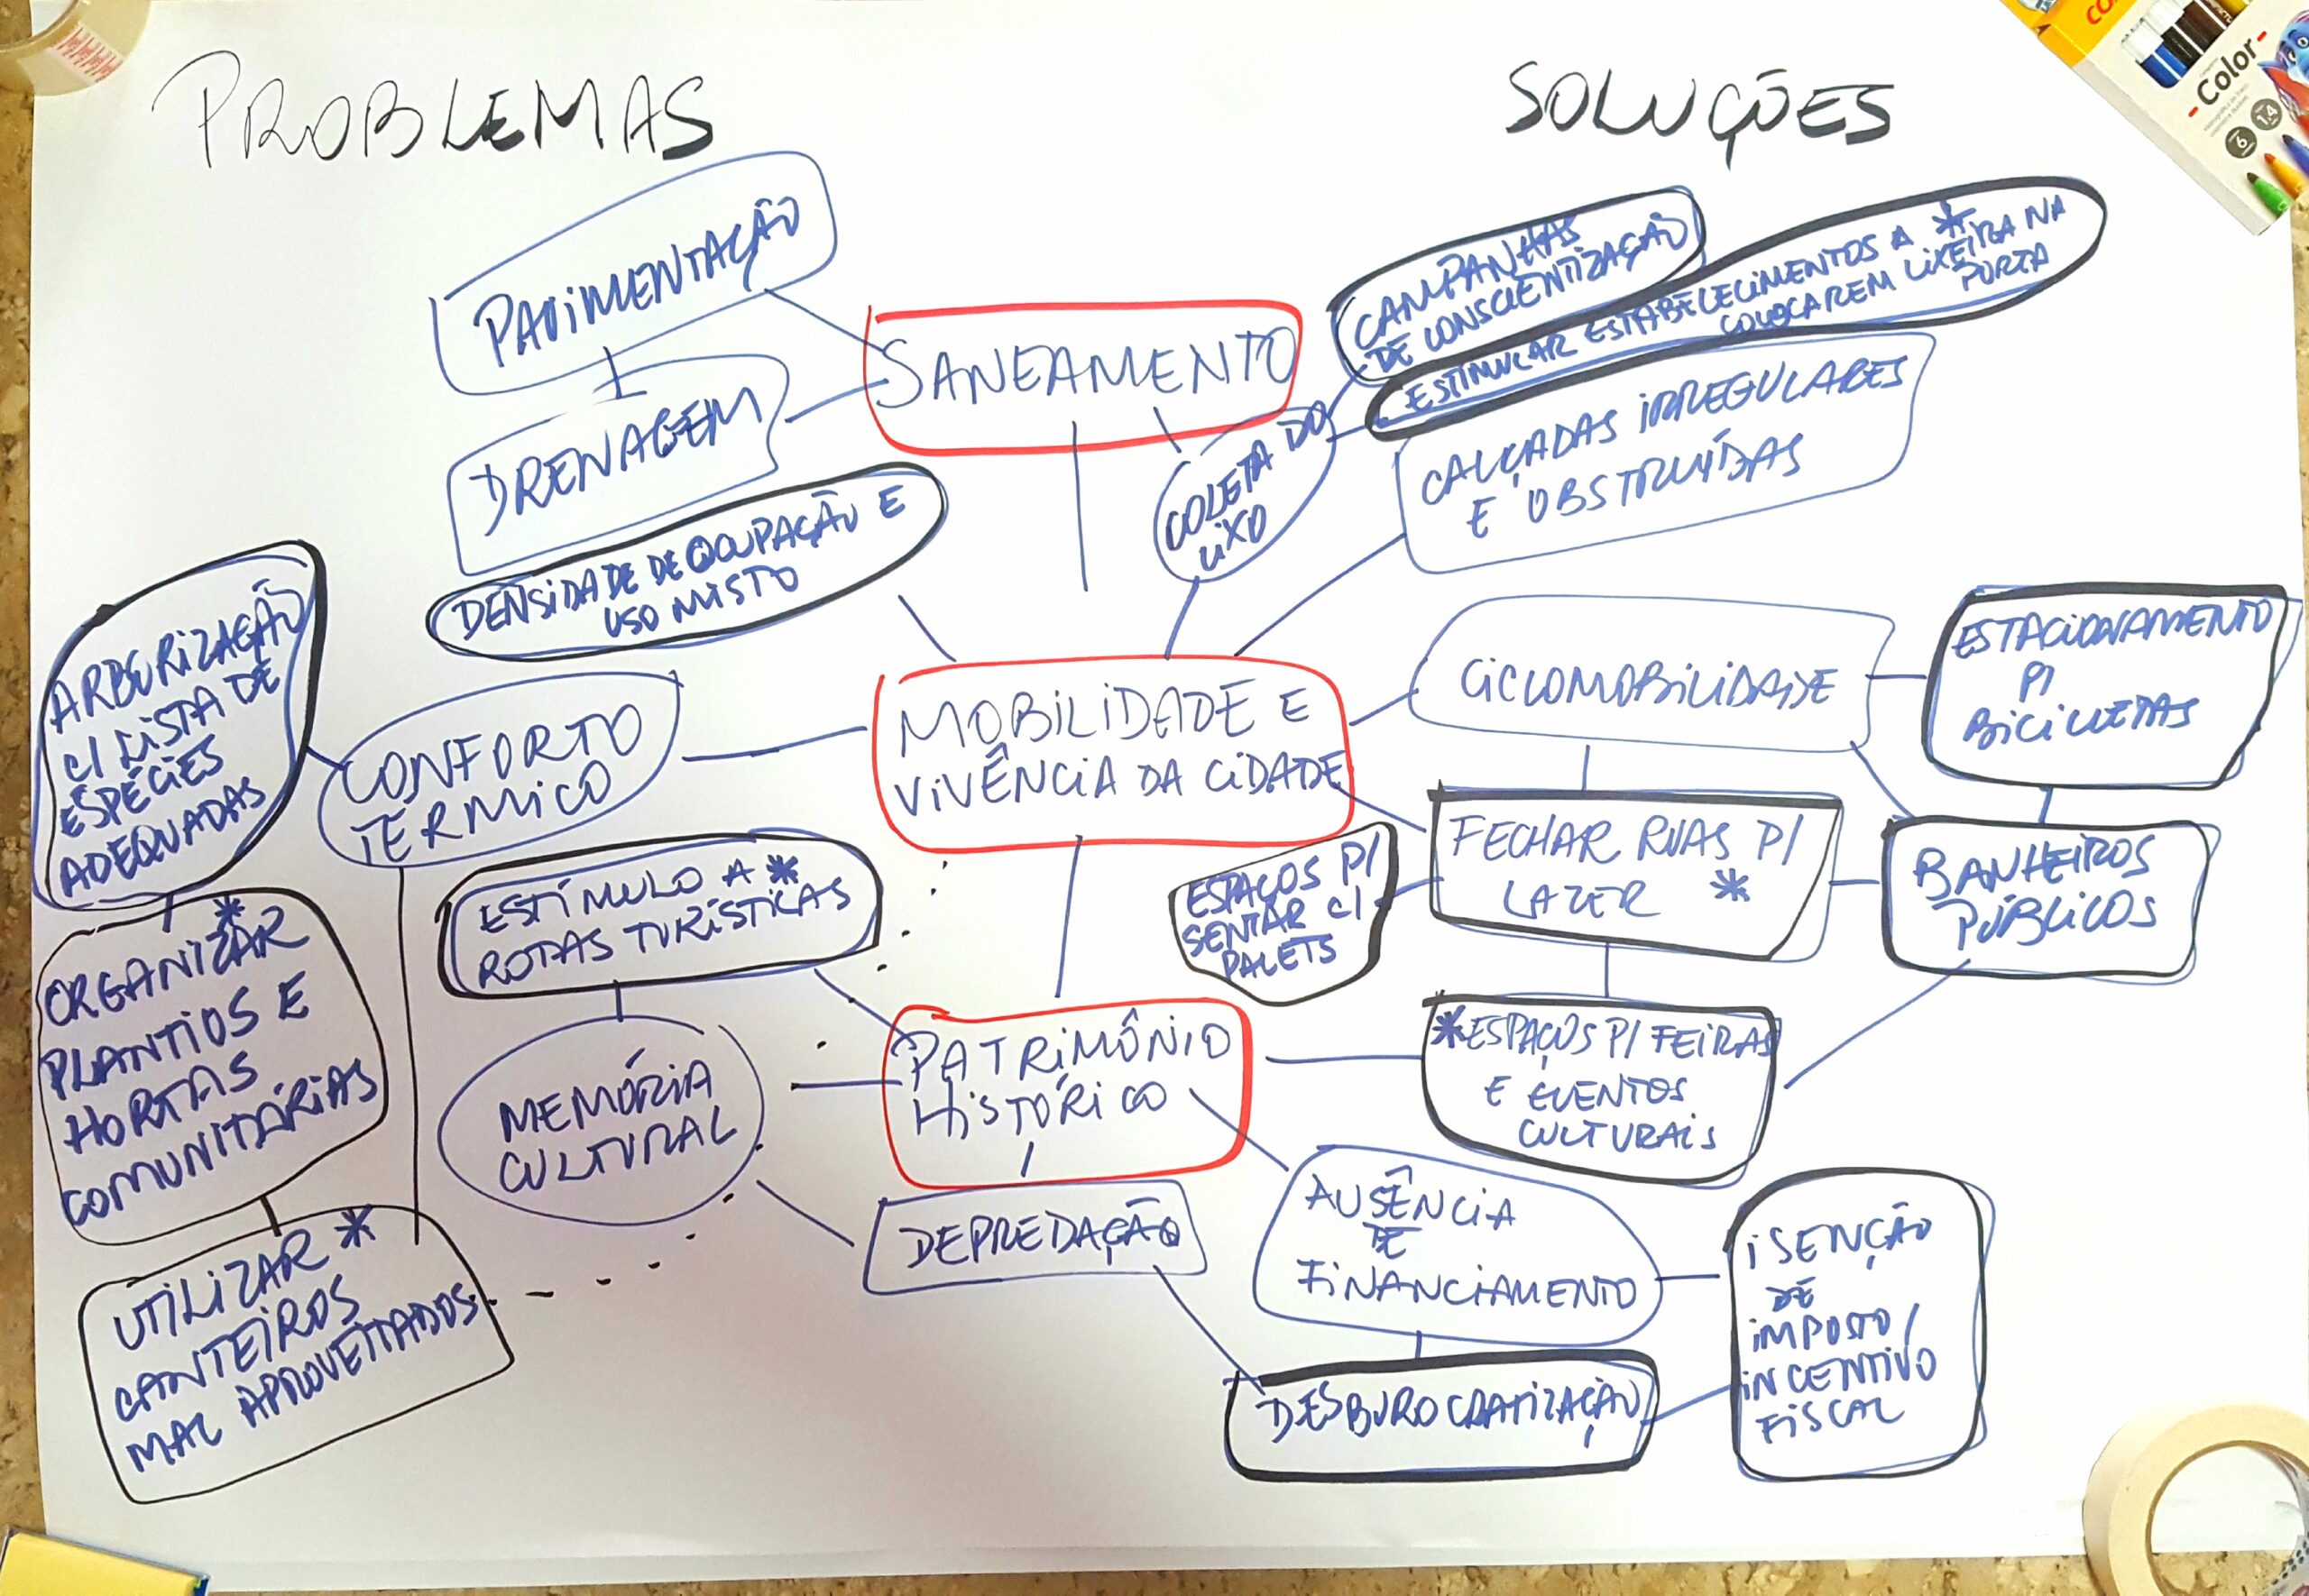 PROBLEMAS
SOLUÇÕES
PAVIMENTAÇÃO
DRENAGEM
SANEAMENTO
COLETA DO
LIXO
CAMPANHAS
DE CONSCIENTIZAÇÃO
ESTIMULAR ESTABELECIMENTOS A *
COLOCAREM LIXEIRA NA
PORTA
CALÇADAS IRREGULARES
E OBSTRUÍDAS
DENSIDADE DE OCUPAÇÃO E
USO MISTO
ARBORIZAÇÃO
C/ LISTA DE
ESPÉCIES
ADEQUADAS
CONFORTO
TÉRMICO
MOBILIDADE E
VIVÊNCIA DA CIDADE
CICLOMOBILIDADE
ESTACIONAMENTO
P/
BICICLETAS
FECHAR RUAS P/
LAZER *
BANHEIROS
PÚBLICOS
ESPAÇOS P/
SENTAR C/
PALETS
ESTÍMULO A *
ROTAS TURÍSTICAS
*
ORGANIZAR
PLANTIOS E
HORTAS
COMUNITÁRIAS
MEMÓRIA
CULTURAL
PATRIMÔNIO
HISTÓRICO
*ESPAÇOS P/ FEIRAS
E EVENTOS
CULTURAIS
DEPREDAÇÃO
AUSÊNCIA
DE
FINANCIAMENTO
ISENÇÃO
DE
IMPOSTO/
INCENTIVO
FISCAL
UTILIZAR *
CANTEIROS
MAL APROVEITADOS
DESBUROCRATIZAÇÃO
-Color-
6
1.4